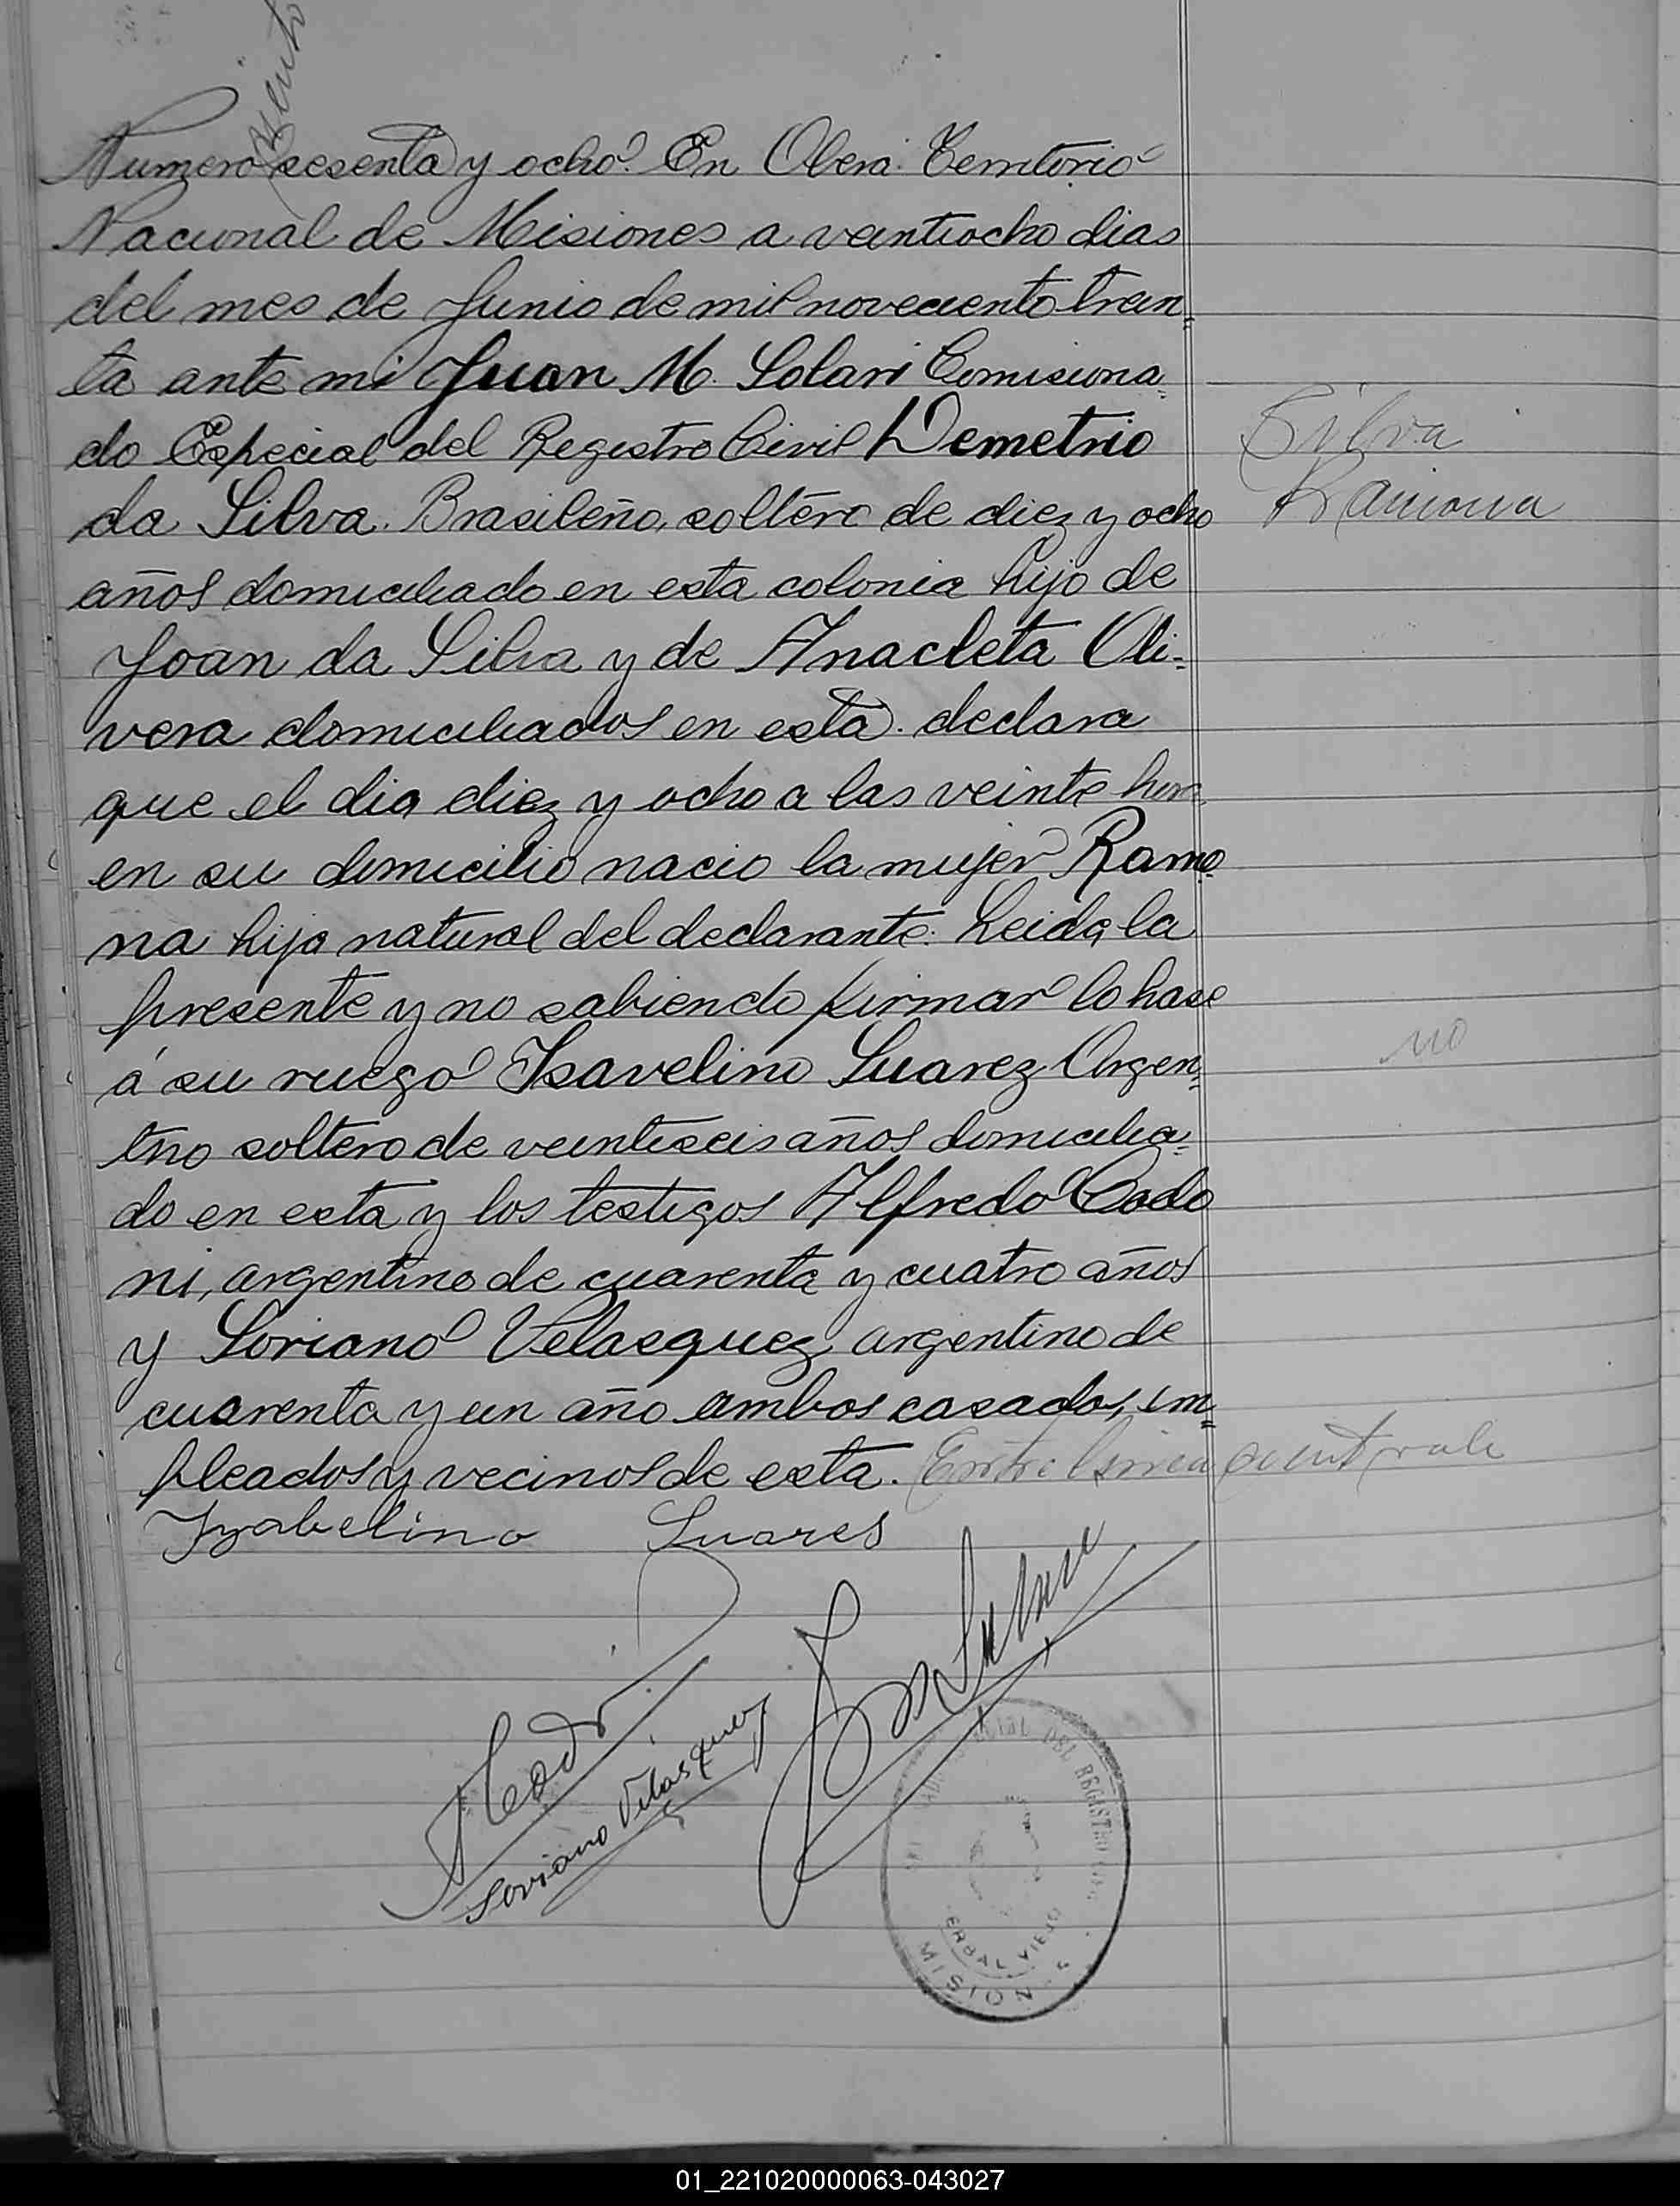 ciento
Numero sesenta y ocho. En Obera. Territorio
Nacional de Misiones a veintiocho dias
del mes de Junio de mil noveciento trein=
ta ante mi Juan M. Solari Comisiona=
do Especial del Registro Civil Demetrio
da Silva. Brasileño, soltero de diez y ocho
Silva
Ramona
años domiciliado en esta colonia hijo de
Joan da Silva y de Anacleta Oli=
vera domiciliados en esta. declara
que el dia diez y ocho a las veinte hora
en su domicilio nacio la mujer Ramo
na hija natural del declarante. Leida la
presente y no sabiendo firmar lo hase
á su ruego Isavelino Suarez Argen=
no
tino soltero de veintiseis años domicilia=
do en esta y los testigos Alfredo Codo
ni, argentino de cuarenta y cuatro años
y Soriano Velasquez argentino de
cuarenta y un año ambos casados, em=
pleados y vecinos de esta. Entre linea ciento vale
Yzabelino Suares
Soriano Velásquez
DEL REGISTRO
ERBAL VIEJO
MISION S
01_221020000063-043027